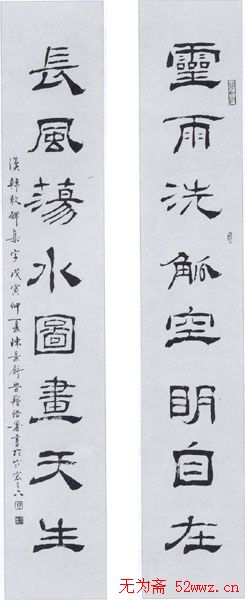 靈雨洗觚空明自在
長風蕩水圖畫天生
漢韓敕碑集字戊寅仲夏陳景舒書於
无为斋 52wwz.cn